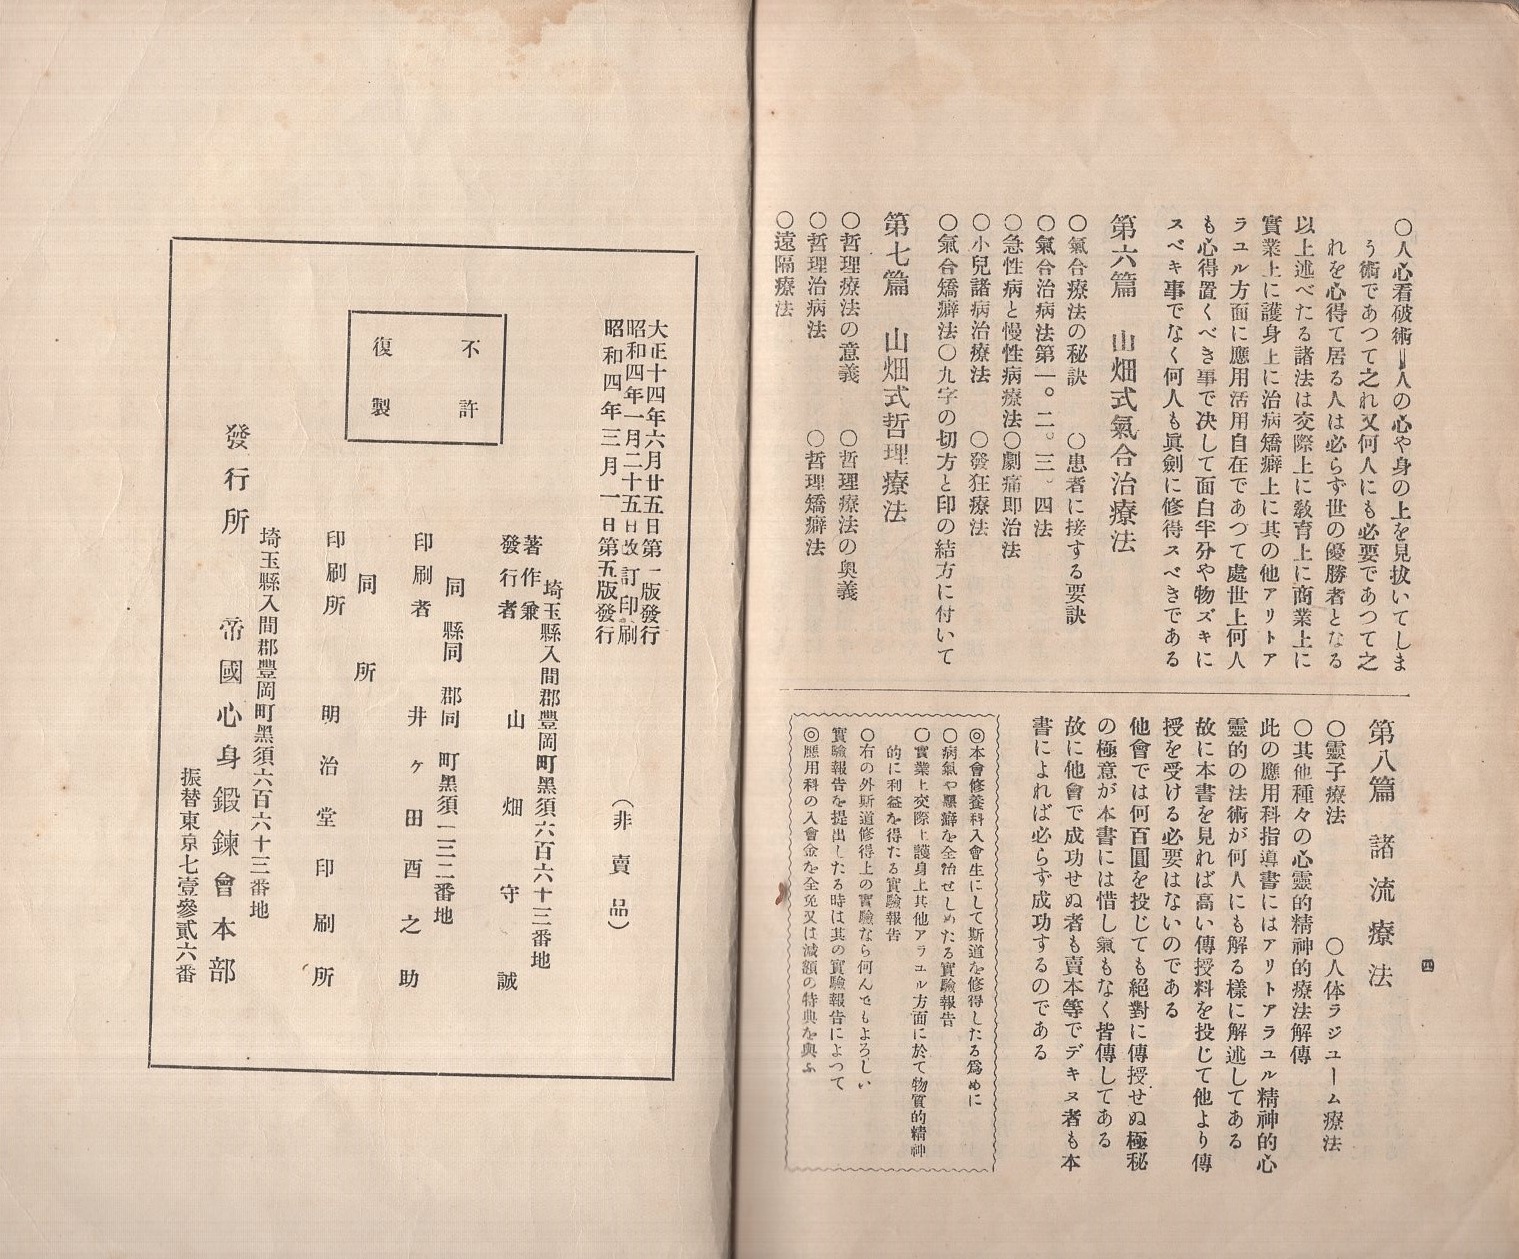 〇人心看破術‖人の心や身の上を見抜いてしま
う術であつて之れ又何人にも必要であつて之
れを心得て居る人は必らず世の優勝者となる
以上述べたる諸法は交際上に教育上に商業上に
實業上に護身上に治病矯癖上に其の他アリトア
ラユル方面に應用活用自在であつて處世上何人
も心得置くべき事で决して面白半分や物ズキに
スベキ事でなく何人も眞劍に修得スべきである
第六篇 山畑式氣合治療法
〇氣合療法の秘訣 〇患者に接する要訣
〇氣合治病法第一。二。三。四法
〇急性病と慢性病療法〇劇痛即治法
〇小兒諸病治療法 〇發狂療法
〇氣合矯癖法〇九字の切方と印の結方に付いて
第七篇 山畑式哲理療法
〇哲理療法の意義 〇哲理療法の奥義
〇哲理治病法 〇哲理矯癖法
〇遠隔療法
第八篇 諸流療法
〇靈子療法 〇人体ラジユーム療法
〇其他種々の心靈的精神的療法解傳
此の應用科指導書にはアリトアラユル精神的心
靈的の法術が何人にも解る様に解述してある
故に本書を見れば高い傳授料を投じて他より傳
授を受ける必要はないのである
他會では何百圓を投じても絕對に傳授せぬ極秘
の極意が本書には惜し氣もなく皆傳してある
故に他會で成功せぬ者も賣本等でデキヌ者も本
書によれば必らず成功するのである
◎本會修養科入會生にして斯道を修得したる爲めに
〇病氣や惡癖を全治せしめたる實驗報告
〇實業上交際上護身上其他アラユル方面に於て物質的精神
的に利益を得たる實驗報告
〇右の外斯道修得上の實驗なら何んでもよろしい
實驗報告を提出したる時は其の實驗報告によつて
◎應用科の入會金を全免又は減額の特典を與ふ
四
大正十四年六月廿五日第一版發行
昭和四年一月二十五日改訂印刷
昭和四年三月一日第五版發行
(非賣品)
不許
復製
埼玉縣入間郡豐岡町黑須六百六十三番地
著作兼
發行者 山畑守誠
同縣同郡同町黑須一三二番地
印刷者 井ヶ田酉之助
同所
印刷所 明治堂印刷所
埼玉縣入間郡豐岡町黑須六百六十三番地
發行所 帝國心身鍛鍊會本部
振替東京七壹參貳六番